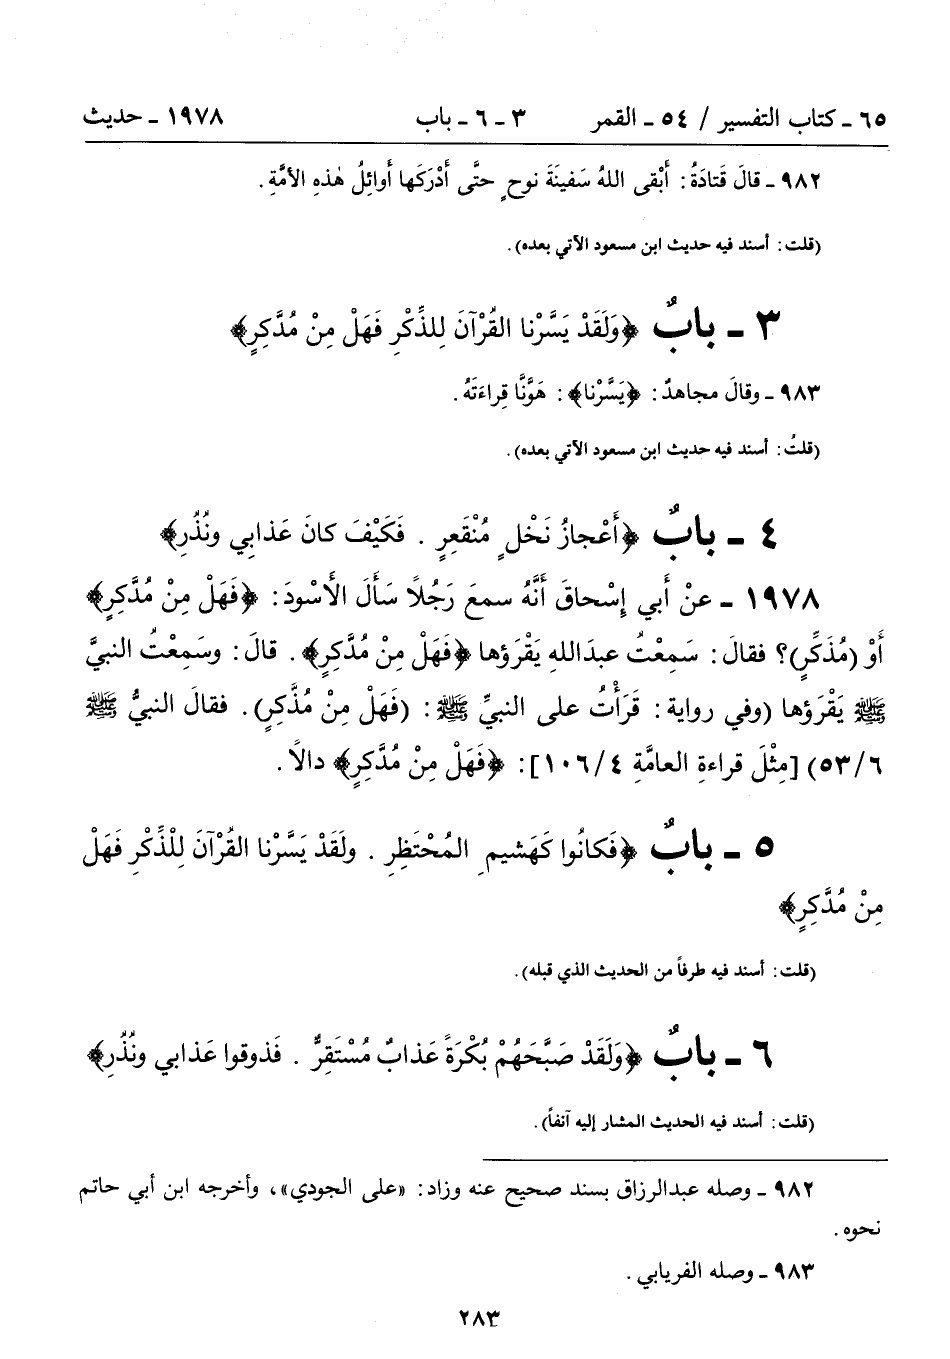 ٦٥ - كتاب التفسير / ٥٤ - القمر ٣ - ٦ - باب ١٩٧٨ - حديث
٩٨٢ - قالَ قَتادَةُ: أَبْقى اللهُ سَفينَةَ نوحٍ حتَّى أَدْرَكَها أَوائِلُ هٰذِهِ الأمَّةِ.
(قلت: أسند فيه حديث ابن مسعود الآتي بعده).
٣ - بابٌ ﴿وَلَقَدْ يَسَّرْنا القُرْآنَ لِلذِّكْرِ فَهَلْ مِنْ مُدَّكِرٍ﴾
٩٨٣ - وقالَ مجاهدٌ: ﴿يَسَّرْنا﴾: هَوَّنَّا قِراءَتَهُ.
(قلتُ: أسند فيه حديث ابن مسعود الآتي بعده).
٤ - بابٌ ﴿أَعْجازُ نَخْلٍ مُنْقَعِرٍ. فَكَيْفَ كانَ عَذابي ونُذُرِ﴾
١٩٧٨ - عنْ أَبي إِسْحاقَ أَنَّهُ سمعَ رَجُلاً سَأَلَ الأسْودَ: ﴿فَهَلْ مِنْ مُدَّكِرٍ﴾
أَوْ (مُذَكِّرٍ)؟ فقالَ: سَمِعْتُ عبدَاللهِ يَقْرَؤها ﴿فَهَلْ مِنْ مُدَّكِرٍ﴾. قالَ: وسَمِعْتُ النبيَّ
ﷺ يَقْرَؤها (وفي رواية: قَرَأْتُ على النبيِّ ﷺ: (فَهَلْ مِنْ مُذَّكِرٍ). فقالَ النبيُّ ﷺ
٥٣/٦) [مِثْلَ قراءةِ العامَّةِ ١٠٦/٤]: ﴿فَهَلْ مِنْ مُدَّكِرٍ﴾ دالاً.
٥ - بابٌ ﴿فَكانُوا كَهَشيمِ المُحْتَظِرِ. ولَقَدْ يَسَّرْنا القُرْآنَ لِلْذِّكْرِ فَهَلْ
مِنْ مُدَّكِرٍ﴾
(قلت: أسند فيه طرفاً من الحديث الذي قبله).
٦ - بابٌ ﴿وَلَقَدْ صَبَّحَهُمْ بُكْرَةً عَذابٌ مُسْتَقِرٌّ. فَذوقوا عَذابي ونُذُرِ﴾
(قلت: أسند فيه الحديث المشار إليه آنفاً).
٩٨٢ - وصله عبدالرزاق بسند صحيح عنه وزاد: «على الجودي»، وأخرجه ابن أبي حاتم
نحوه.
٩٨٣ - وصله الفريابي.
٢٨٣